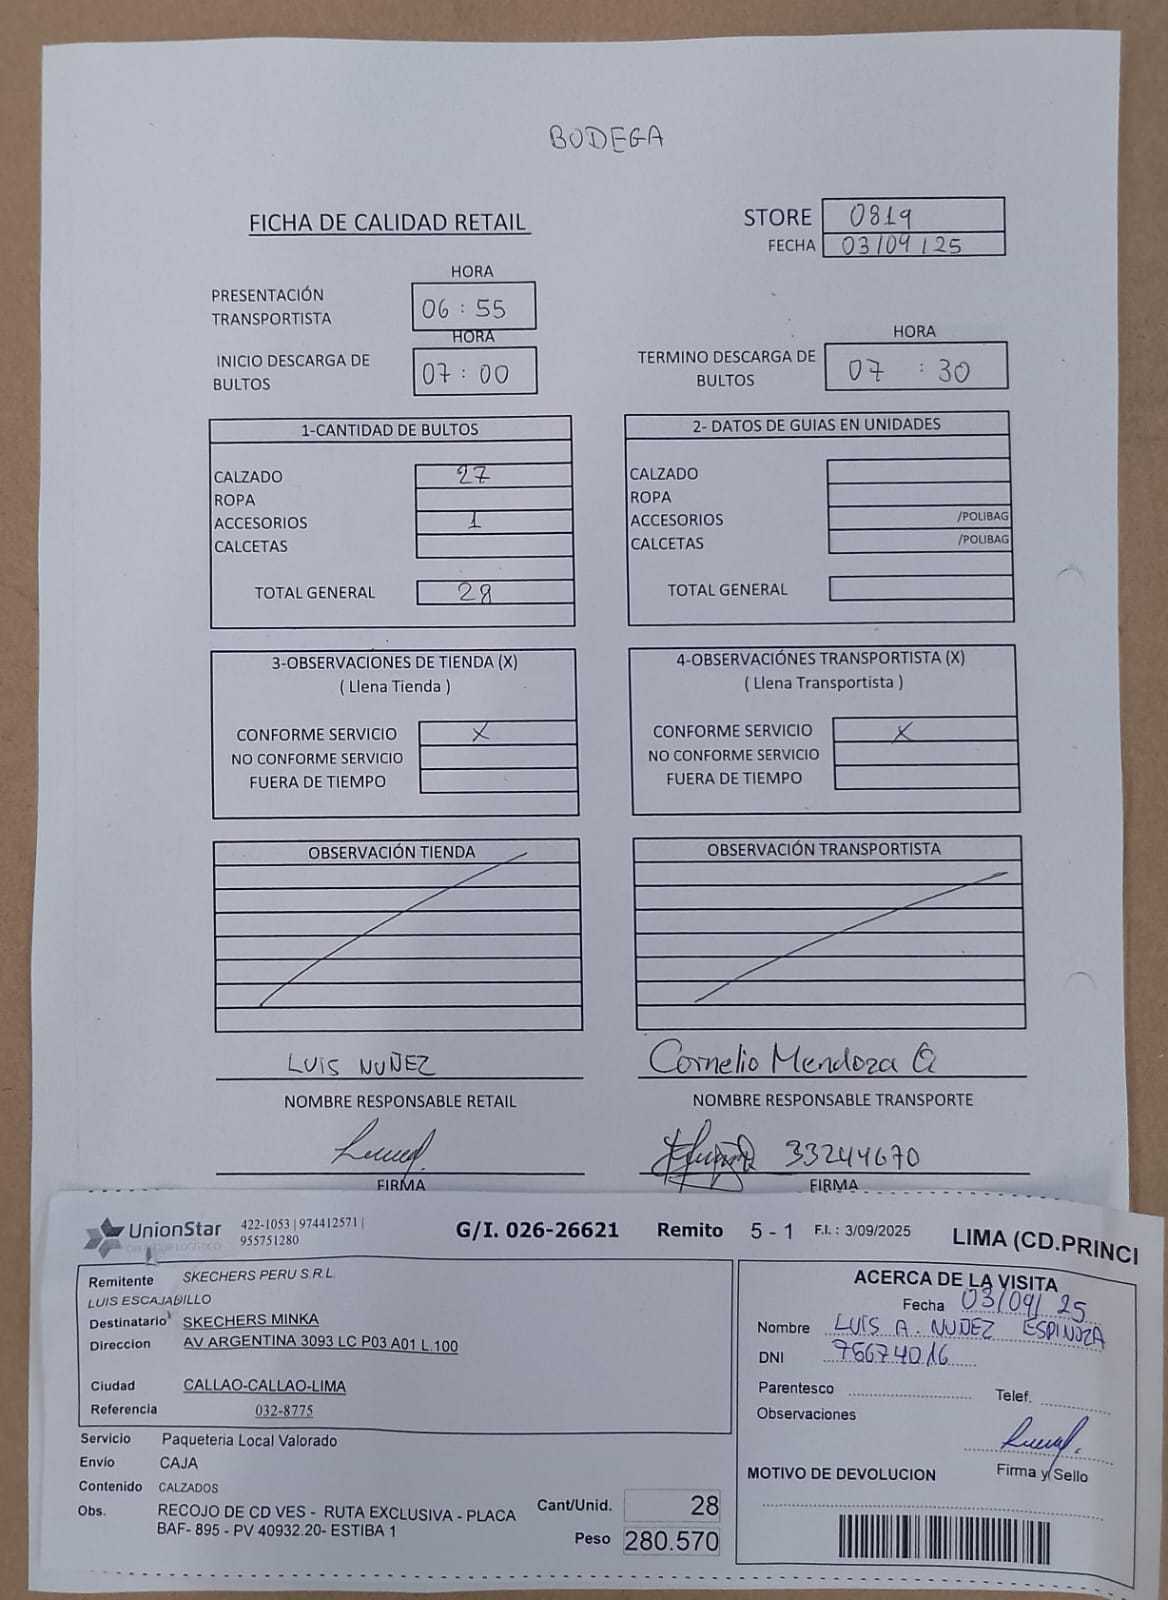 BODEGA
FICHA DE CALIDAD RETAIL
STORE 0819
FECHA 03/09/25
HORA
PRESENTACIÓN TRANSPORTISTA 06:55
HORA
INICIO DESCARGA DE BULTOS 07:00
HORA
TERMINO DESCARGA DE BULTOS 07:30
1-CANTIDAD DE BULTOS
CALZADO 27
ROPA
ACCESORIOS 1
CALCETAS
TOTAL GENERAL 28
2- DATOS DE GUIAS EN UNIDADES
CALZADO
ROPA
ACCESORIOS /POLIBAG
CALCETAS /POLIBAG
TOTAL GENERAL
3-OBSERVACIONES DE TIENDA (X)
( Llena Tienda )
CONFORME SERVICIO X
NO CONFORME SERVICIO
FUERA DE TIEMPO
4-OBSERVACIÓNES TRANSPORTISTA (X)
( Llena Transportista )
CONFORME SERVICIO X
NO CONFORME SERVICIO
FUERA DE TIEMPO
OBSERVACIÓN TIENDA
OBSERVACIÓN TRANSPORTISTA
LUIS NUÑEZ
NOMBRE RESPONSABLE RETAIL
FIRMA
Cornelio Mendoza Q
NOMBRE RESPONSABLE TRANSPORTE
33244670
FIRMA
UnionStar
422-1053 | 974412571 |
955751280
G/I. 026-26621 Remito 5 - 1 F.I. : 3/09/2025 LIMA (CD.PRINCI
Remitente SKECHERS PERU S.R.L.
LUIS ESCAJADILLO
Destinatario SKECHERS MINKA
Direccion AV ARGENTINA 3093 LC P03 A01 L.100
Ciudad CALLAO-CALLAO-LIMA
Referencia 032-8775
Servicio Paqueteria Local Valorado
Envío CAJA
Contenido CALZADOS
Obs. RECOJO DE CD VES - RUTA EXCLUSIVA - PLACA
BAF- 895 - PV 40932.20- ESTIBA 1
Cant/Unid. 28
Peso 280.570
ACERCA DE LA VISITA
Fecha 03/09/25
Nombre LUIS A. NUÑEZ ESPINOZA
DNI 76674016
Parentesco Telef.
Observaciones
Firma y Sello
MOTIVO DE DEVOLUCION